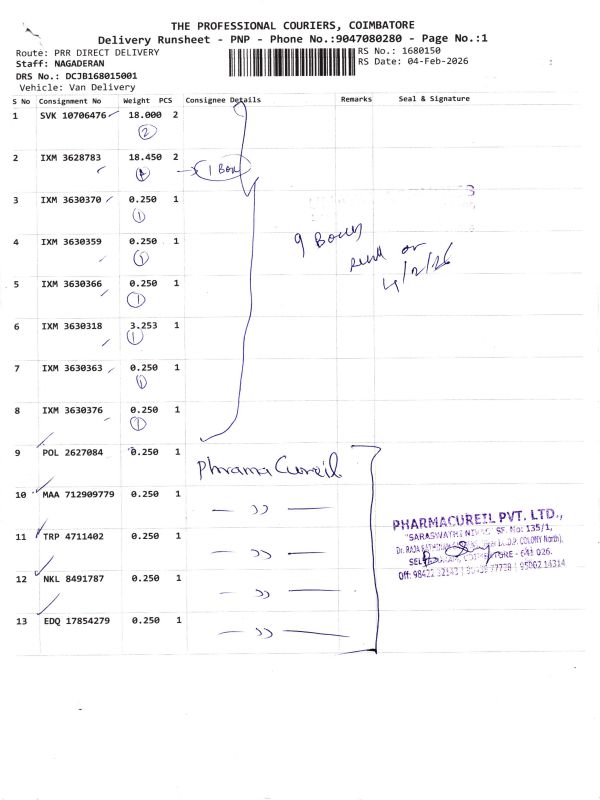 THE PROFESSIONAL COURIERS, COIMBATORE
Delivery Runsheet - PNP - Phone No.:9047080280 - Page No.:1
Route: PRR DIRECT DELIVERY
RS No.: 1680150
Staff: NAGADERAN
RS Date: 04-Feb-2026
DRS No.: DCJB168015001
Vehicle: Van Delivery
S No Consignment No Weight PCS Consignee Details Remarks Seal & Signature
1 SVK 10706476 18.000 2
2
2 IXM 3628783 18.450 2
1 Box
3 IXM 3630370 0.250 1
1
4 IXM 3630359 0.250 1
1
9 Boxes
on
4/2/26
5 IXM 3630366 0.250 1
1
6 IXM 3630318 3.253 1
1
7 IXM 3630363 0.250 1
1
8 IXM 3630376 0.250 1
1
9 POL 2627084 0.250 1 Phrama Cureil
10 MAA 712909779 0.250 1 — ,, —
11 TRP 4711402 0.250 1 — ,, —
12 NKL 8491787 0.250 1 — ,, —
13 EDQ 17854279 0.250 1 — ,, —
PHARMACUREIL PVT. LTD.,
"SARASWATHI SF. No: 135/1,
Dr. COLONY North),
- 641 026.
Off: 77738 | 95002 14314